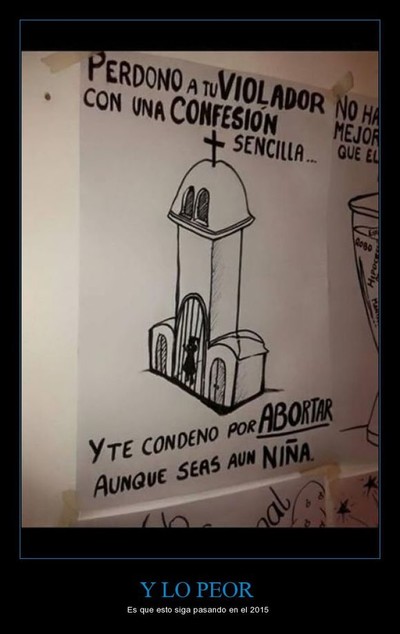 PERDONO A TU VIOLADOR
CON UNA CONFESIÓN
SENCILLA...
Y TE CONDENO POR ABORTAR
AUNQUE SEAS AUN NIÑA.
NO HA
MEJOR
QUE EL
ROBO
Y LO PEOR
Es que esto siga pasando en el 2015